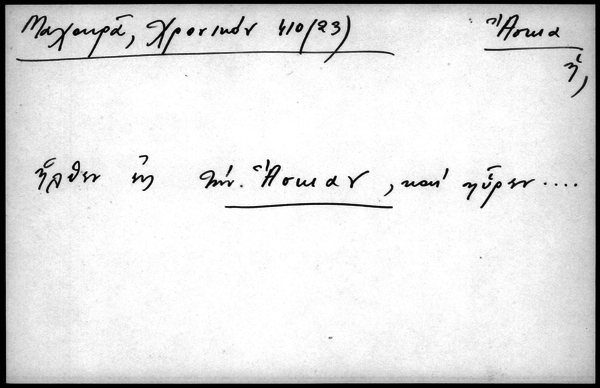 Μαχαιρά, Χρονικόν 410 (23) Ἄσκια
ἡ,
ἦλθεν εἰς τὴν Ἄσκιαν, καὶ ηὗρεν ....